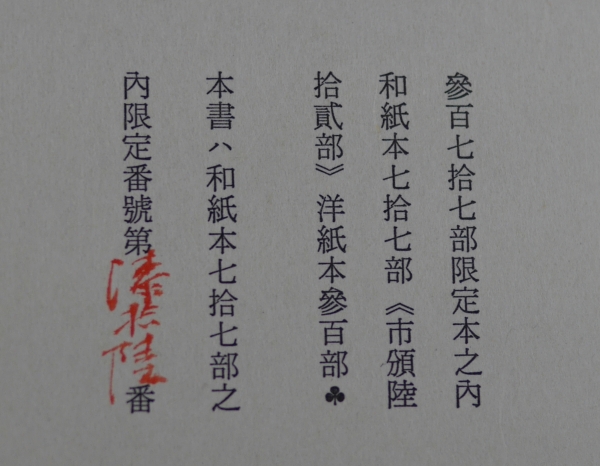 參百七拾七部限定本之內
和紙本七拾七部《市頒陸
拾貳部》洋紙本參百部♣
本書ハ和紙本七拾七部之
內限定番號第漆拾陸番